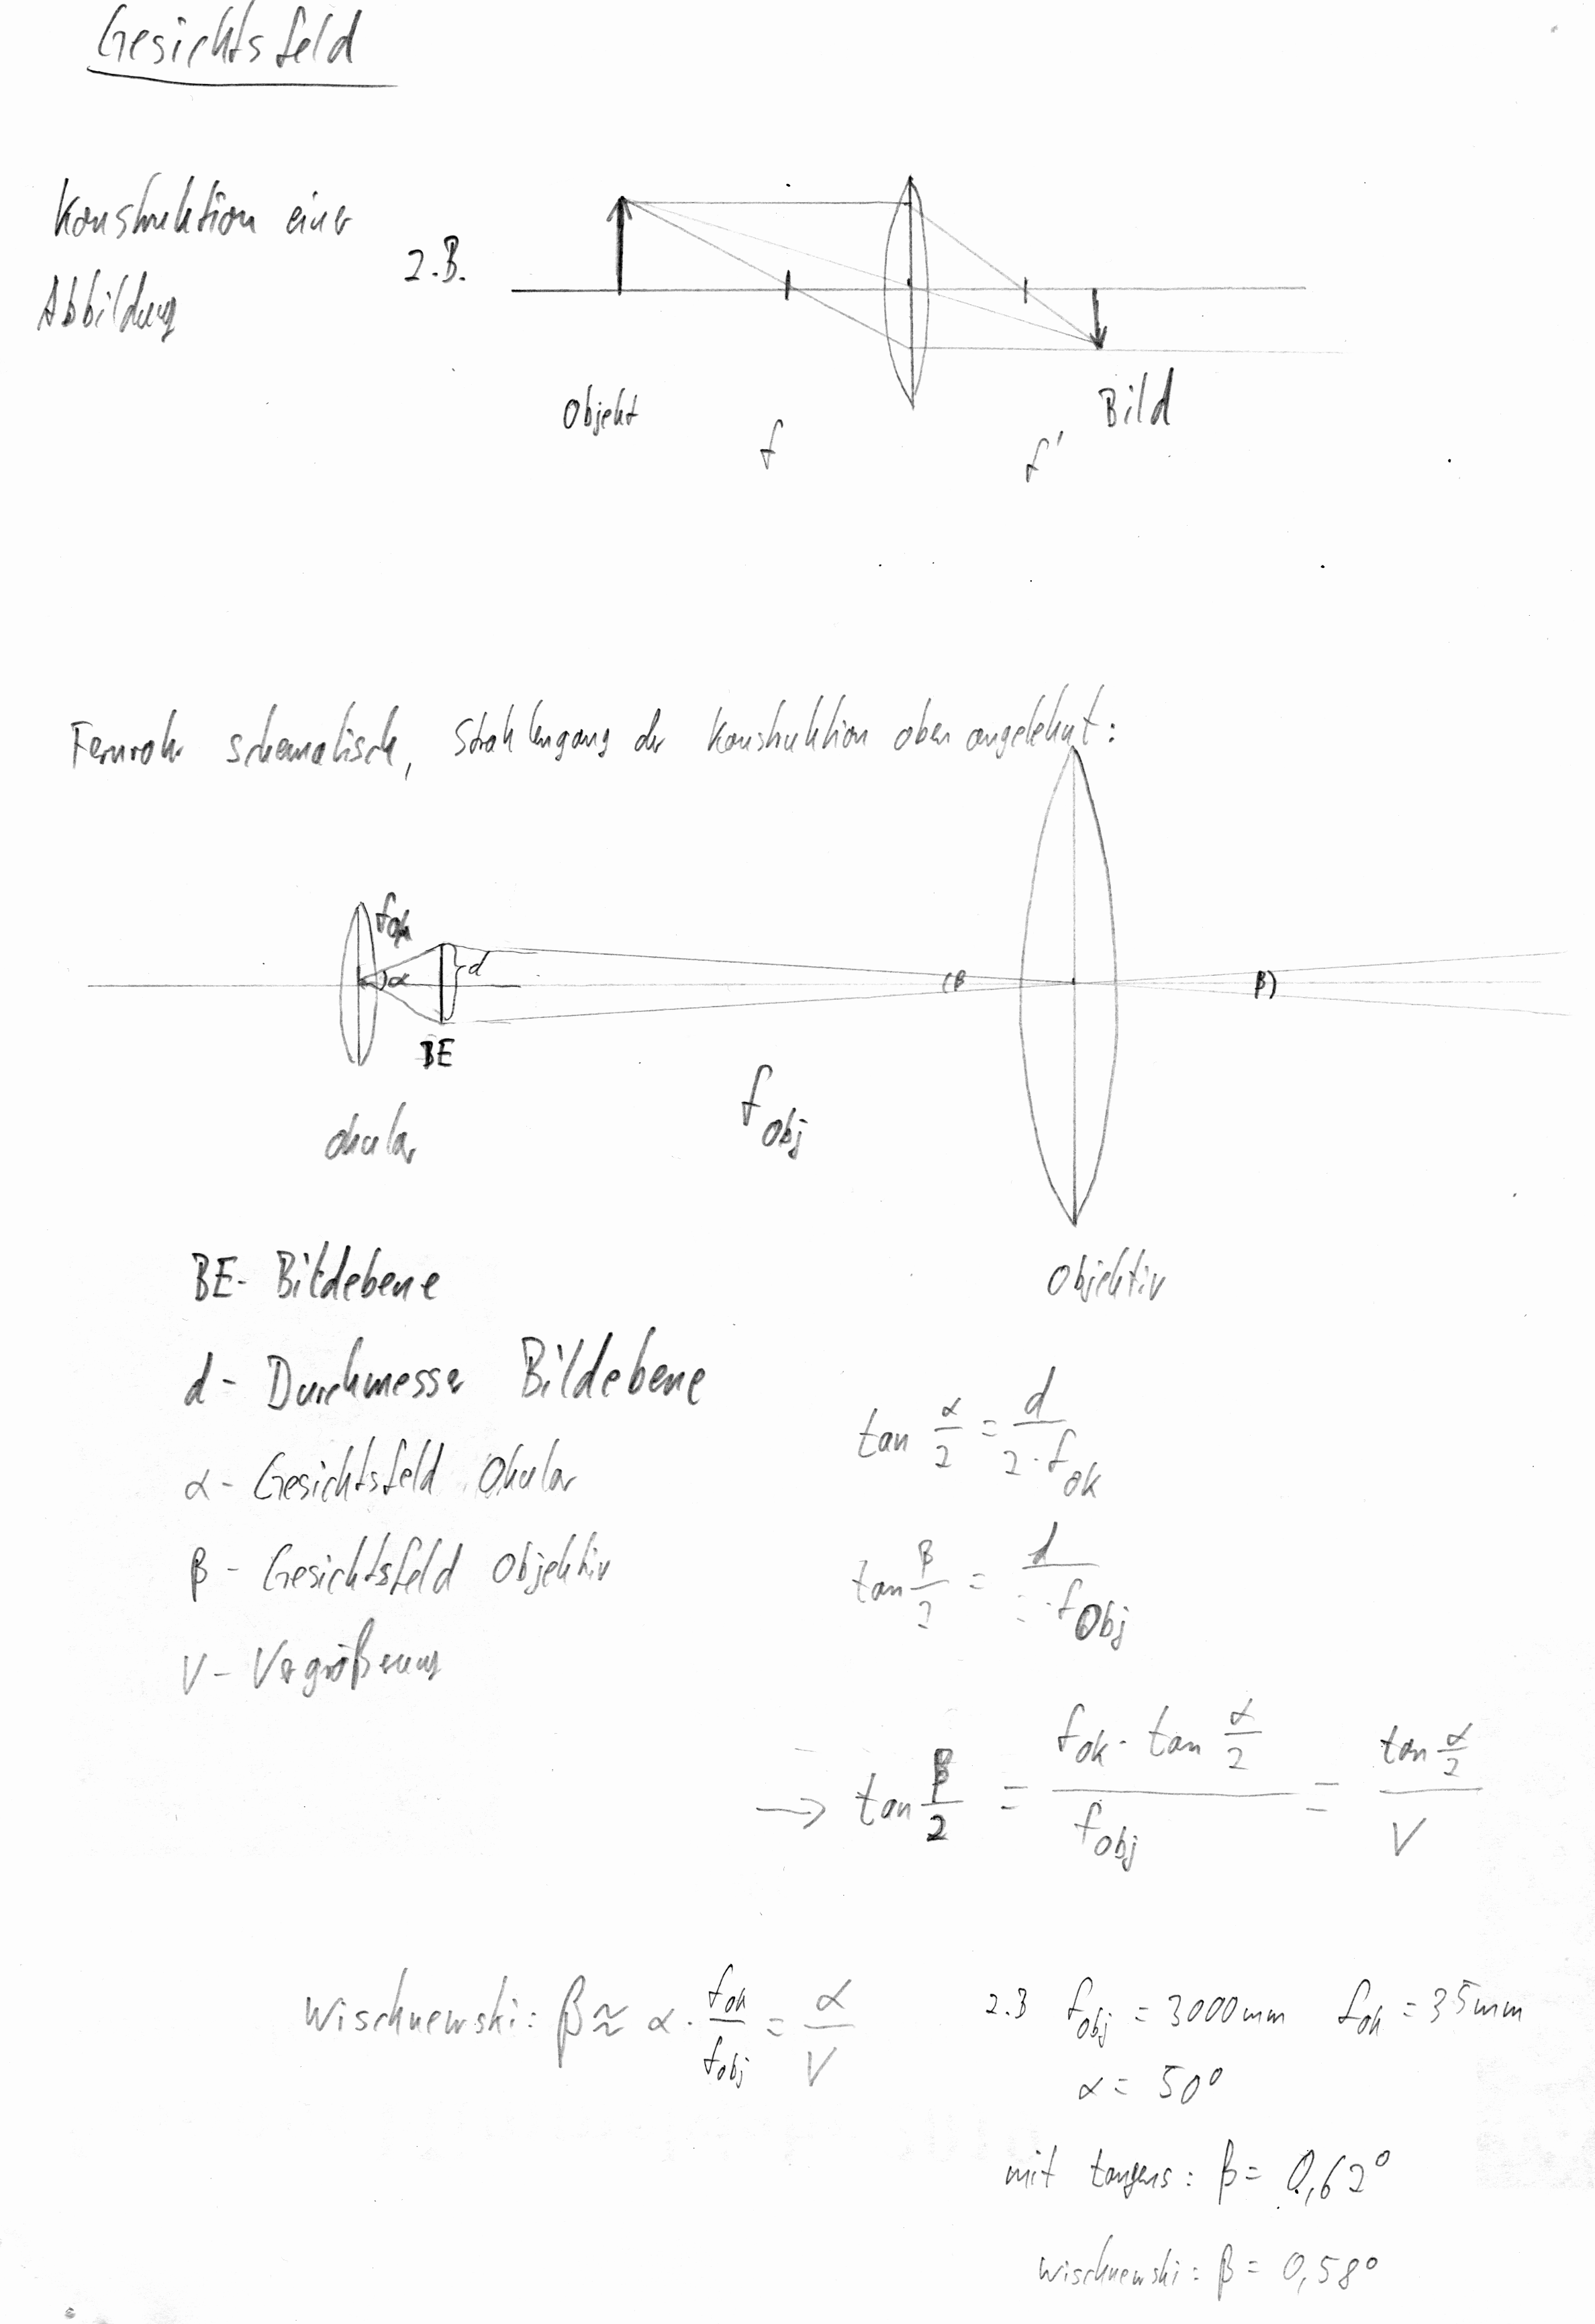 Gesichtsfeld
Konstruktion einer
Abbildung
z.B.
Objekt
f
f'
Bild
Fernrohr schematisch, Strahlengang der Konstruktion oben angelehnt:
f_ok
α
d
(β
β)
BE
f_obj
Okular
Objektiv
BE - Bildebene
d - Durchmesser Bildebene
α - Gesichtsfeld Okular
β - Gesichtsfeld Objektiv
V - Vergrößerung
tan α/2 = d/(2·f_ok)
tan β/2 = d/(2·f_Obj)
→ tan β/2 = (f_ok · tan α/2)/f_obj = (tan α/2)/V
Wischnewski: β ≈ α · f_ok/f_obj = α/V
z.B f_obj = 3000mm f_ok = 35mm
α = 50°
mit tangens: β = 0,62°
Wischnewski: β = 0,58°